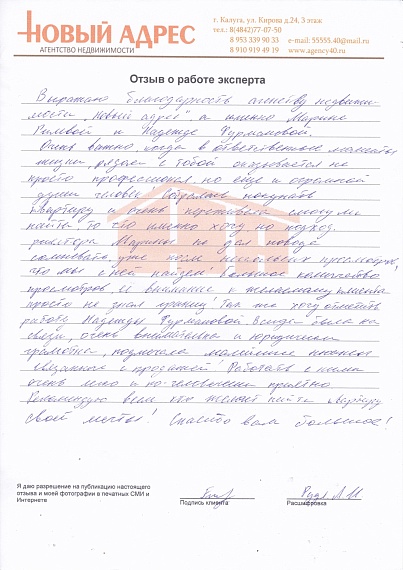 НОВЫЙ АДРЕС
АГЕНТСТВО НЕДВИЖИМОСТИ
г. Калуга, ул. Кирова д.24, 3 этаж
тел.: 8(4842)77-07-50
8 953 339 90 33 e-mail: 55555.40@mail.ru
8 910 919 49 19 www.agency40.ru
Отзыв о работе эксперта
Выражаю благодарность агенству недвижи-
мости „Новый адрес" а именно Марине
и Надежде Фурмановой.
Очень важно, когда в ответственные моменты
жизни, рядом с тобой оказывается не
просто профессионал, но еще и огромной
души человек. покупать
квартиру и очень переживала смогу ли
найти, то что именно хочу но подход
риэлтора Марины не дал повода
сомневаться, уже после нескольких просмотров,
что мы с ней найдем! Большое количество
просмотров, ее внимание к желаемому клиента
просто не знал границ! Так же хочу отметить
работу Надежды Фурмановой. Всегда была на
связи, очень внимательна и юридически
грамотна, подмечала малейшие нюансы
связанные с продажей! Работать с ними
очень легко и по-человечески приятно.
Рекомендую всем кто желает найти квартиру
своей мечты! Спасибо вам большое!
Я даю разрешение на публикацию настоящего
отзыва и моей фотографии в печатных СМИ и
Интернете
Подпись клиента Расшифровка